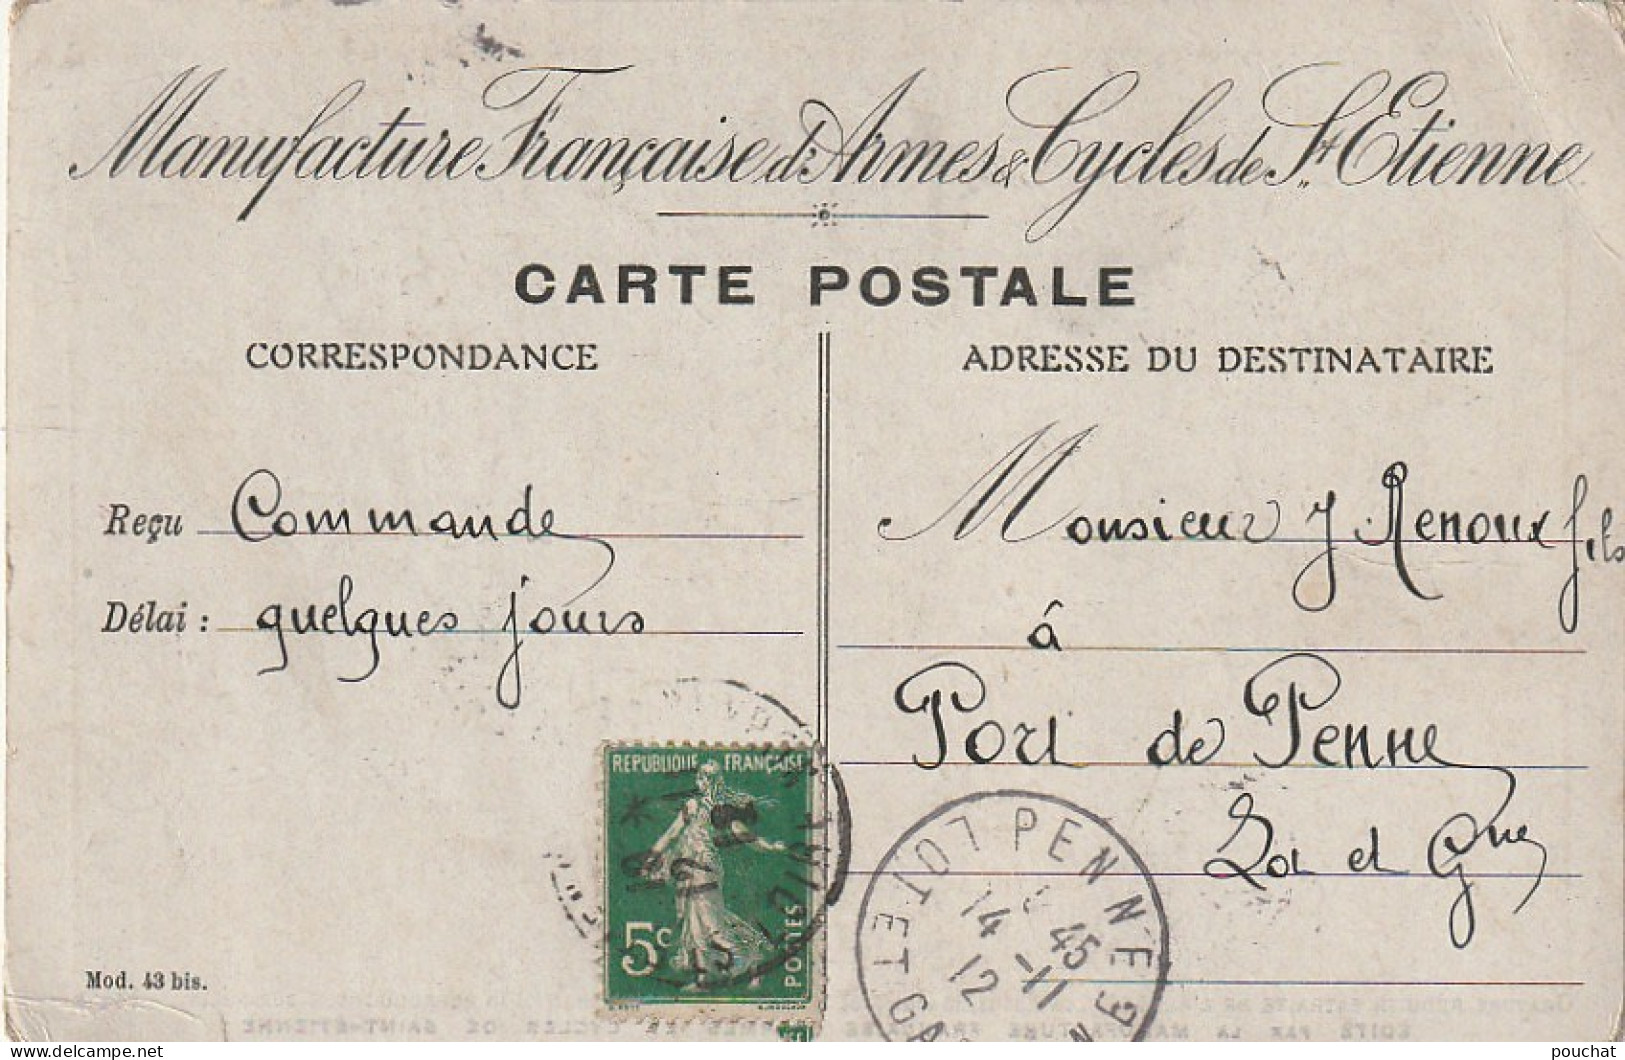 Manufacture Française d'Armes & Cycles de St Etienne
CARTE POSTALE
CORRESPONDANCE
ADRESSE DU DESTINATAIRE
Reçu Commande
Délai : quelques jours
Monsieur J Renoux fils
à
Port de Penne
Lot et Gne
REPUBLIQUE FRANÇAISE
5c
POSTES
PENNE
LOT ET GA
14 45
12 -11
Mod. 43 bis.
EDITÉ PAR LA MANUFACTURE FRANÇAISE D'ARMES ET CYCLES DE SAINT-ÉTIENNE
pouchat